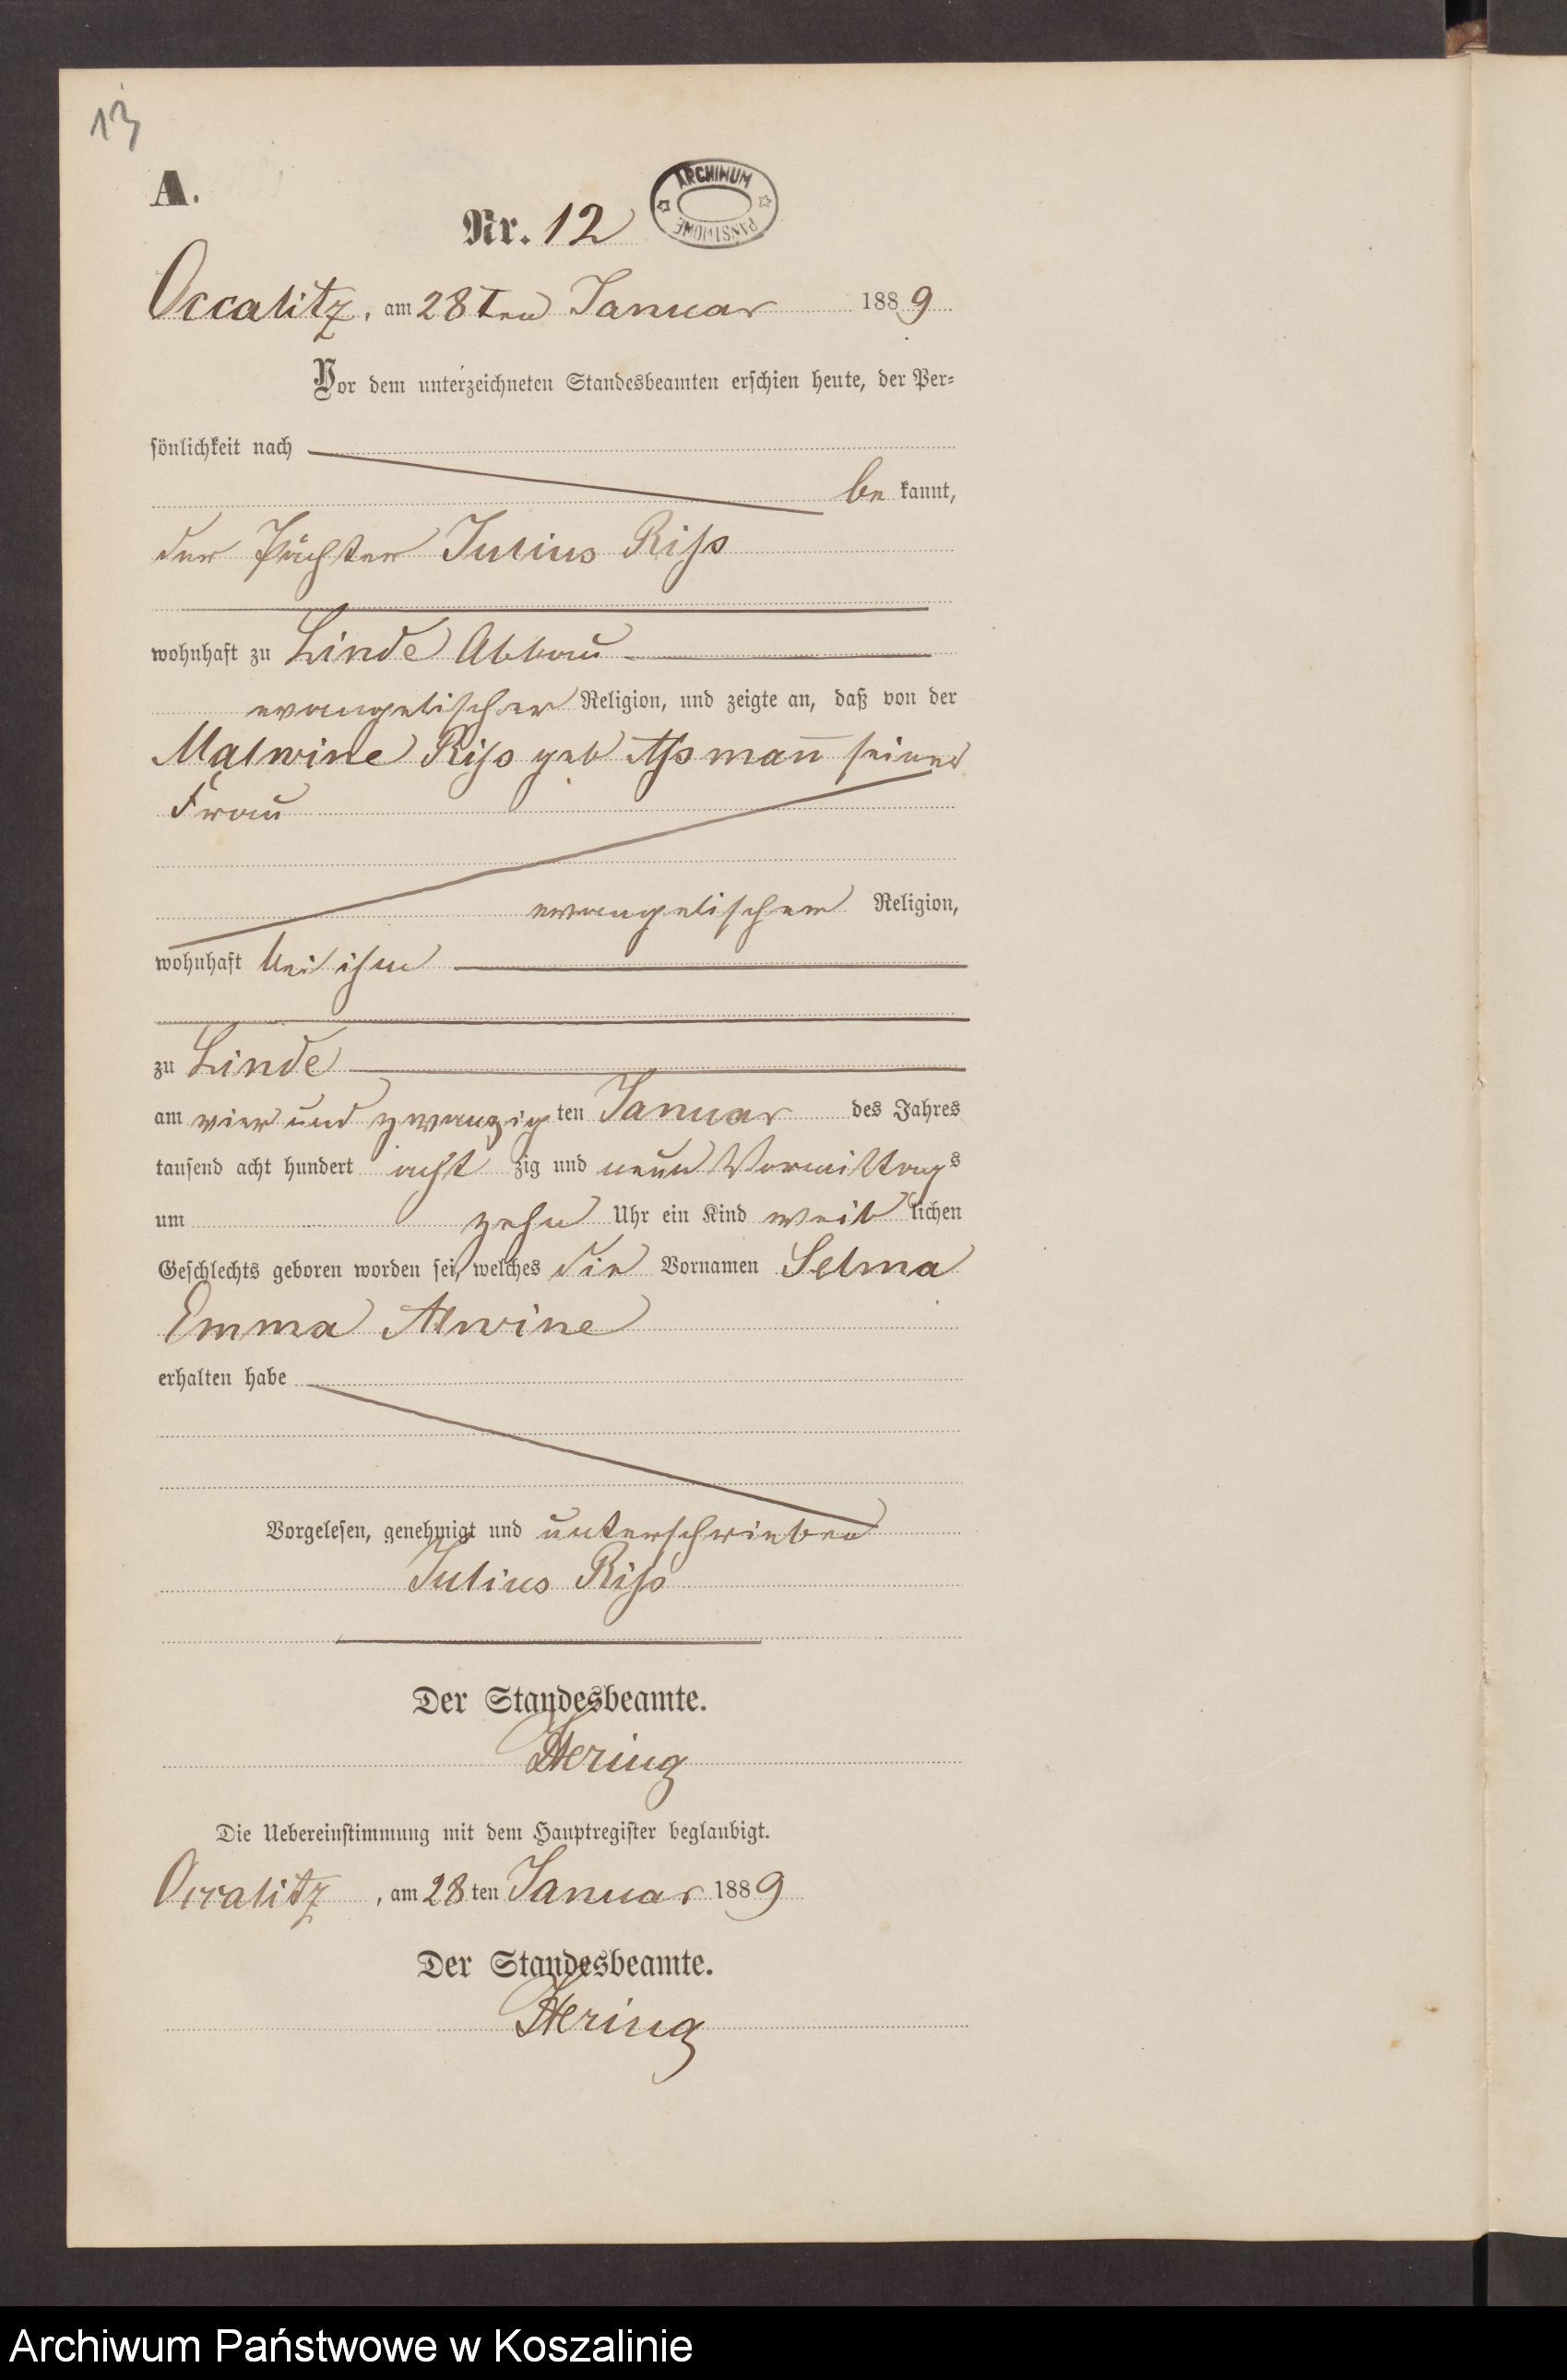 13
A.
ARCHIWUM
PAŃSTWOWE
Nr. 12
Occalitz, am 28ten Januar 1889
Vor dem unterzeichneten Standesbeamten erschien heute, der Per=
sönlichkeit nach
be kannt,
der Pächter Julius Riss
wohnhaft zu Linde Abbau
evangelischer Religion, und zeigte an, daß von der
Malwine Riss geb Assman̄ seiner
Frau
evangelischer Religion,
wohnhaft bei ihm
zu Linde
am vier und zwanzigten Januar des Jahres
tausend acht hundert acht zig und neun Vormittags
um zehn Uhr ein Kind weib lichen
Geschlechts geboren worden sei, welches die Vornamen Selma
Emma Alwine
erhalten habe
Vorgelesen, genehmigt und unterschrieben
Julius Riss
Der Standesbeamte.
Hering
Die Uebereinstimmung mit dem Hauptregister beglaubigt.
Occalitz, am 28 ten Januar 1889
Der Standesbeamte.
Hering
Archiwum Państwowe w Koszalinie